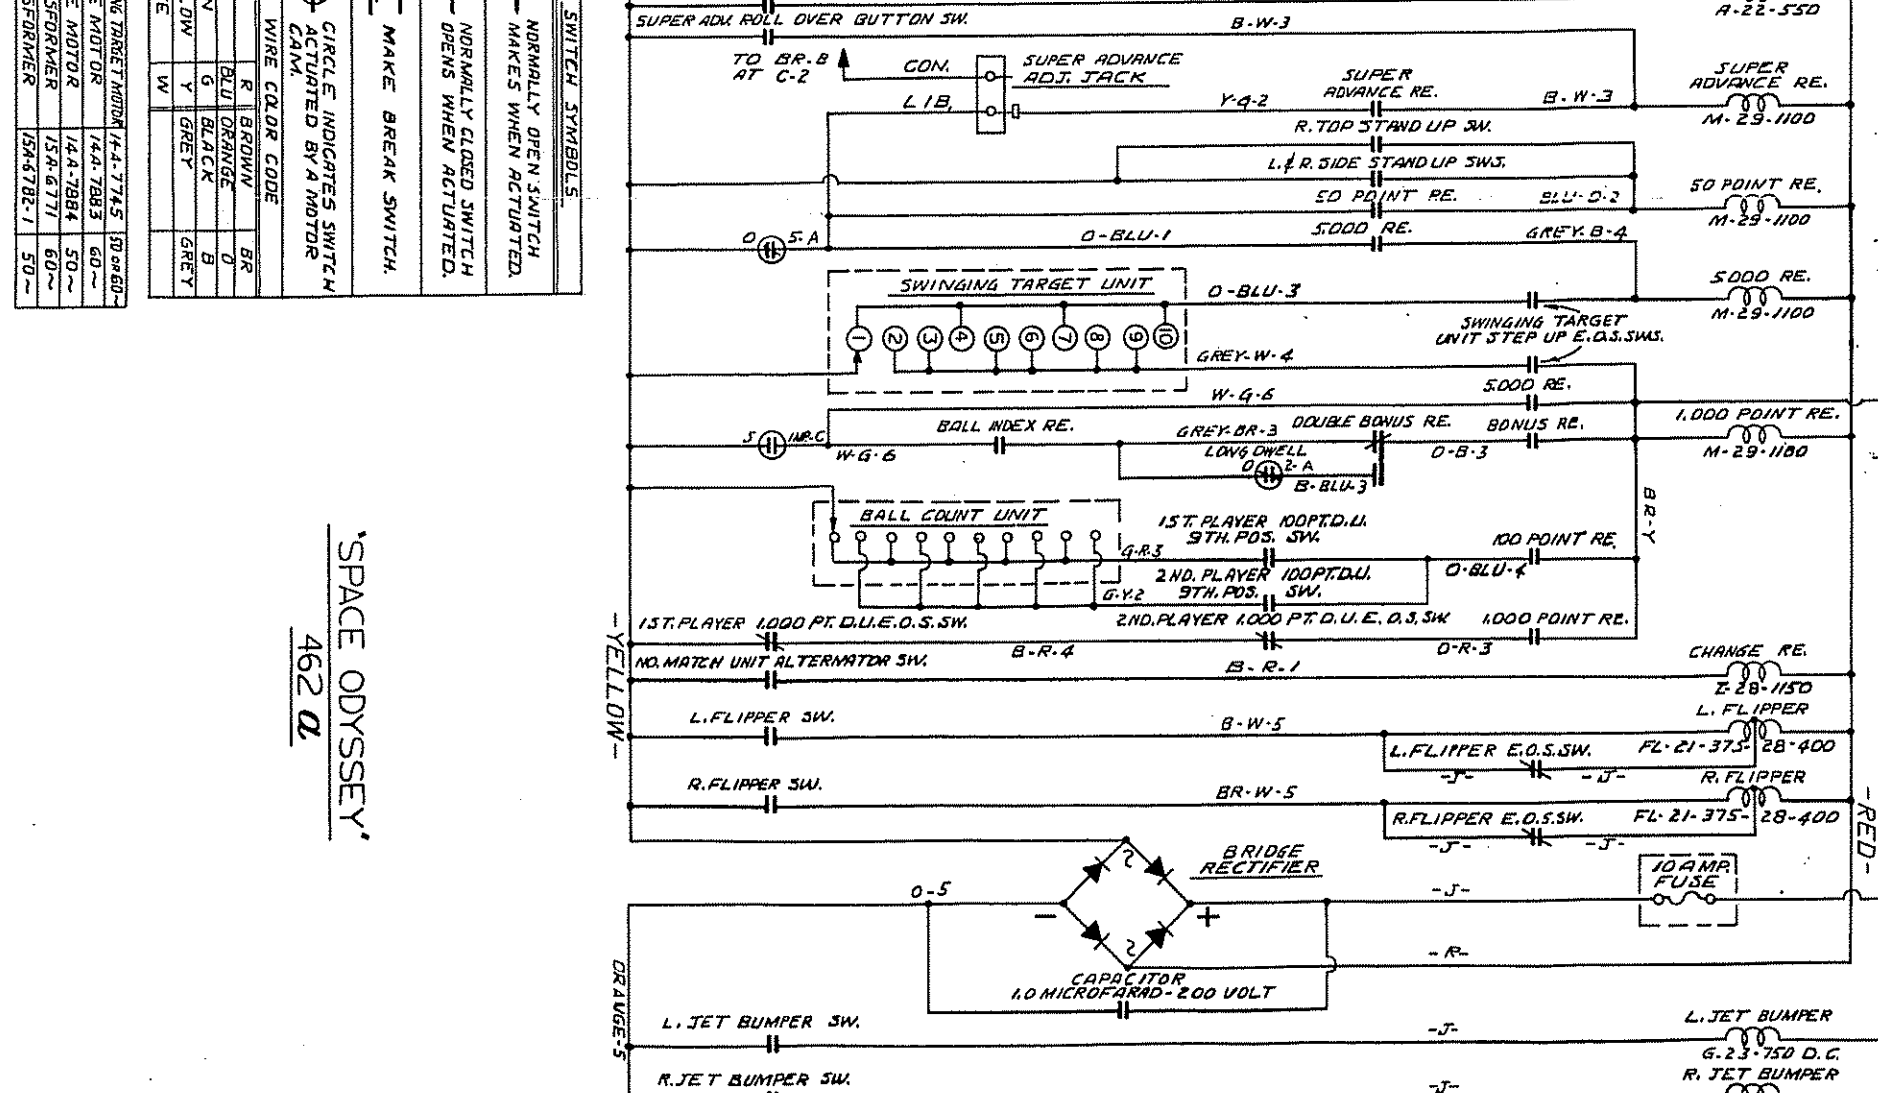 SUPER ADV. ROLL OVER BUTTON SW.
B-W-3
A-22-550
TO BR.B
AT C-2
CON.
SUPER ADVANCE
ADJ. JACK
LIB.
Y-G-2
SUPER
ADVANCE RE.
B-W-3
SUPER
ADVANCE RE.
M-29-1100
R. TOP STAND UP SW.
L. & R. SIDE STAND UP SWS.
50 POINT RE.
BLU-O-2
50 POINT RE.
M-29-1100
O 5-A
O-BLU-1
5000 RE.
GREY-B-4
SWINGING TARGET UNIT
O-BLU-3
5000 RE.
M-29-1100
1 2 3 4 5 6 7 8 9 10
SWINGING TARGET
UNIT STEP UP E.O.S.SWS.
GREY-W-4
5000 RE.
W-G-6
BALL INDEX RE.
GREY-BR-3
DOUBLE BONUS RE.
BONUS RE.
1,000 POINT RE.
M-29-1100
5 IMP.C
W-G-6
LONG DWELL
O 2-A
B-BLU-3
O-B-3
BR-Y
BALL COUNT UNIT
1ST. PLAYER 100PT.D.U.
9TH. POS. SW.
G-R-3
100 POINT RE.
O-BLU-4
2ND. PLAYER 100PT.D.U.
9TH. POS. SW.
G-Y-2
1ST. PLAYER 1,000 PT. D.U.E.O.S.SW.
2ND. PLAYER 1,000 PT. D.U.E.O.S.SW
1,000 POINT RE.
B-R-4
O-R-3
NO. MATCH UNIT ALTERNATOR SW.
B-R-1
CHANGE RE.
Z-28-1150
-YELLOW-
L. FLIPPER SW.
B-W-5
L. FLIPPER
L. FLIPPER E.O.S.SW.
FL-21-375-28-400
-J-
-J-
R. FLIPPER SW.
BR-W-5
R. FLIPPER
R. FLIPPER E.O.S.SW.
FL-21-375-28-400
-J-
-J-
-RED-
BRIDGE
RECTIFIER
10 AMP.
FUSE
O-5
-J-
-
+
-R-
CAPACITOR
1.0 MICROFARAD-200 VOLT
ORANGE-5
L. JET BUMPER SW.
-J-
L. JET BUMPER
G-23-750 D.C.
R. JET BUMPER SW.
-J-
R. JET BUMPER
SWITCH SYMBOLS
NORMALLY OPEN SWITCH
MAKES WHEN ACTUATED.
NORMALLY CLOSED SWITCH
OPENS WHEN ACTUATED.
MAKE BREAK SWITCH.
CIRCLE INDICATES SWITCH
ACTUATED BY A MOTOR
CAM.
WIRE COLOR CODE
R BROWN BR
BLU ORANGE O
N G BLACK B
LOW Y GREY GREY
TE W
NG TARGET MOTOR 14-A-7745 50 OR 60~
E MOTOR 14A-7883 60~
E MOTOR 14A-7884 50~
SFORMER 15A-6771 60~
SFORMER 15A-6782-1 50~
"SPACE ODYSSEY"
462 a